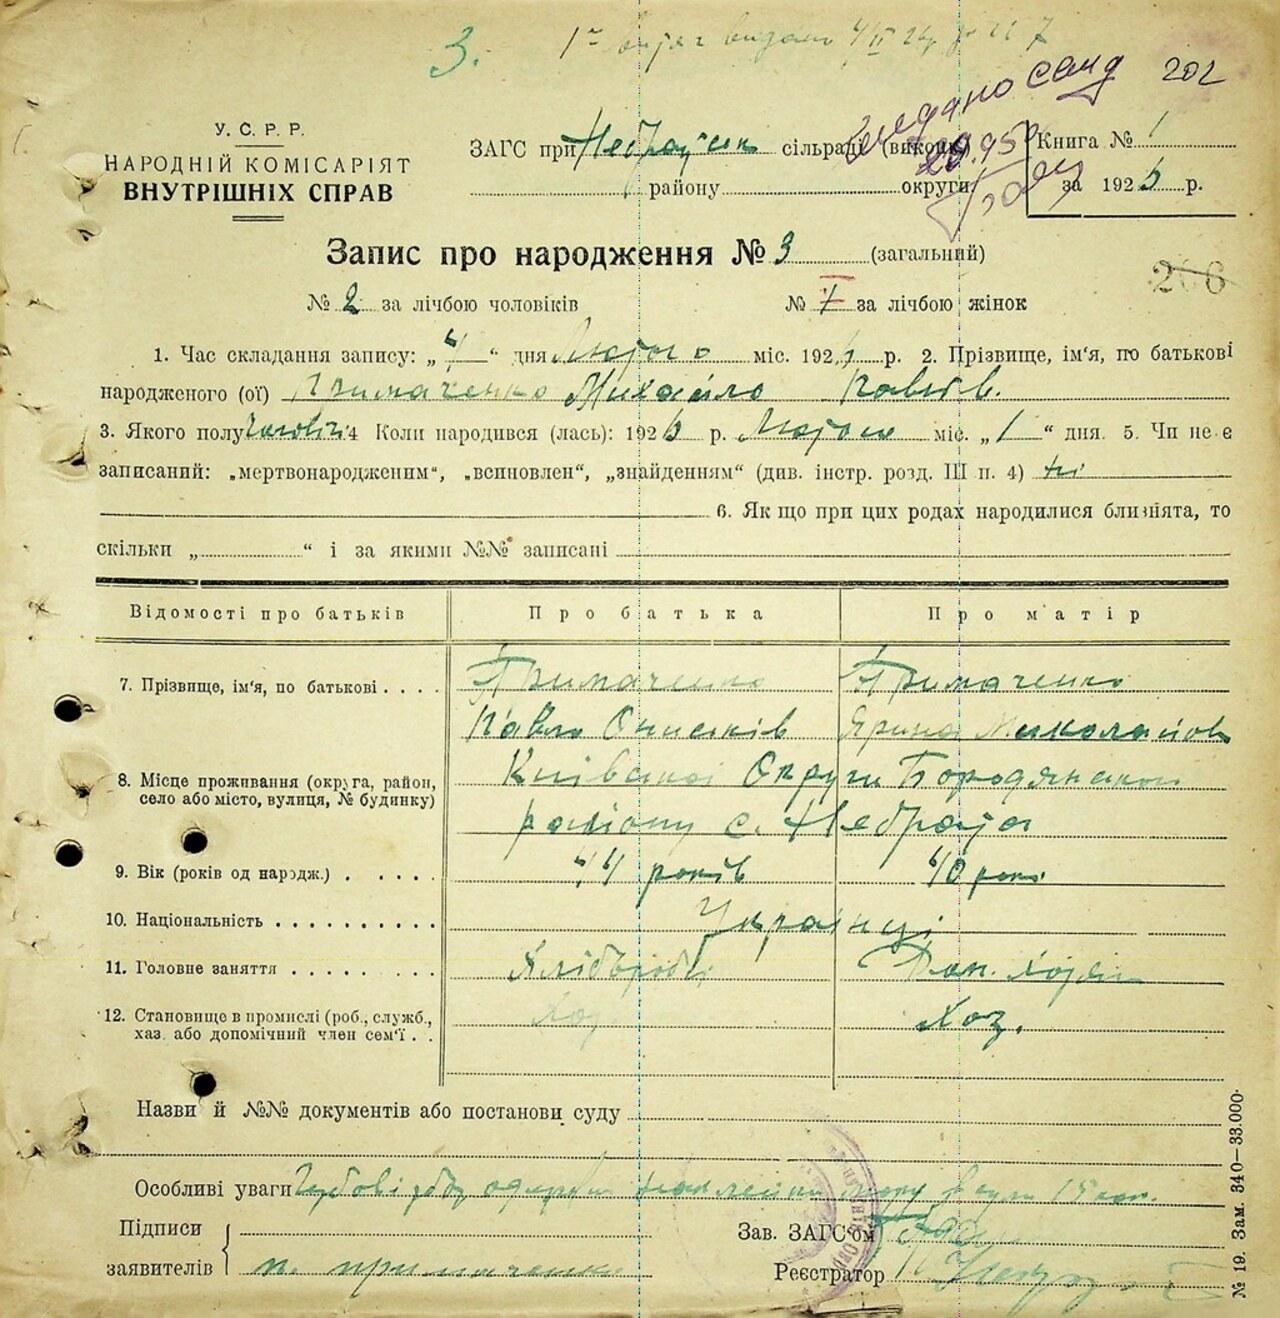 3.
202
У. С. Р. Р.
НАРОДНІЙ КОМІСАРІЯТ
ВНУТРІШНІХ СПРАВ
ЗАГС при сільраді (виконк.)
району округи
Книга № 1
за 1926 р.
Запис про народження № 3 (загальний)
206
№ 2 за лічбою чоловіків № 1 за лічбою жінок
1. Час складання запису: „ 4 “ дня Лютого міс. 1926 р. 2. Прізвище, ім'я, по батькові
народженого (ої) Примаченко Михайло Павлів.
3. Якого полу 4 Коли народився (лась): 1926 р. Лютого міс. „ 1 “ дня. 5. Чи не є
записаний: „мертвонародженим“, „всиновлен“, „знайденням“ (див. інстр. розд. III п. 4) ні
6. Як що при цих родах народилися близнята, то
скільки „ “ і за якими №№ записані
Відомості про батьків Про батька Про матір
7. Прізвище, ім'я, по батькові . . . . Примаченко Примаченко
Павло Ярина Миколаїов
8. Місце проживання (округа, район,
село або місто, вулиця, № будинку)
Київської Округи Бородянського
району с. Небрата
9. Вік (років од народж.) . . . . . 44 років 40 рокі
10. Національність . . . . . . . . . . Українці
11. Головне заняття . . . . . . . Хліборобс.
12. Становище в промислі (роб., служб.,
хаз. або допомічний член сем'ї . . Хоз. Хоз.
Назви й №№ документів або постанови суду
Особливі уваги
Підписи
заявителів п. примаченко
Зав. ЗАГС'ом
Реєстратор
№ 19. Зам. 340—33.000.